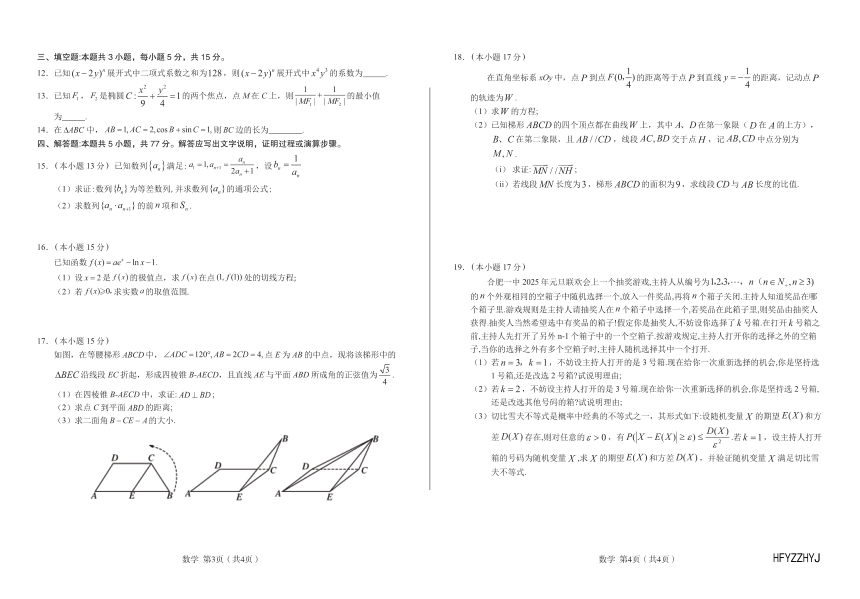 三、填空题:本题共 3 小题，每小题 5 分，共 15 分。
12．已知 (x − 2y)ⁿ 展开式中二项式系数之和为128，则 (x − 2y)ⁿ 展开式中 x⁴y³ 的系数为 _____.
13．已知 F₁，F₂ 是椭圆 C : x²/9 + y²/4 = 1 的两个焦点，点 M 在 C 上，则 1/|MF₁| + 1/|MF₂| 的最小值
为 _____.
14．在 ΔABC 中，AB = 1, AC = 2, cos B + sin C = 1, 则 BC 边的长为 _______.
四、解答题:本题共 5 小题，共 77 分。解答应写出文字说明，证明过程或演算步骤。
15．（本小题 13 分）已知数列{aₙ}满足: a₁ = 1, aₙ₊₁ = aₙ/(2aₙ + 1)，设 bₙ = 1/aₙ
（1）求证: 数列{bₙ}为等差数列, 并求数列{aₙ}的通项公式;
（2）求数列{aₙ · aₙ₊₁}的前 n 项和 Sₙ.
16．（本小题 15 分）
已知函数 f(x) = aeˣ − ln x − 1.
（1）设 x = 2 是 f(x) 的极值点，求 f(x) 在点 (1, f(1)) 处的切线方程;
（2）若 f(x)≥0, 求实数 a 的取值范围.
17．（本小题 15 分）
如图，在等腰梯形 ABCD 中，∠ADC = 120°, AB = 2CD = 4, 点 E 为 AB 的中点，现将该梯形中的
ΔBEC 沿线段 EC 折起，形成四棱锥 B-AECD，且直线 AE 与平面 ABD 所成角的正弦值为 √3/4.
（1）在四棱锥 B-AECD 中，求证: AD ⊥ BD ;
（2）求点 C 到平面 ABD 的距离;
（3）求二面角 B − CE − A 的大小.
D C A E B
B D C A E
B D C A E
数学 第3页（共4页）
18．（本小题 17 分）
在直角坐标系 xOy 中，点 P 到点 F(0, 1/4) 的距离等于点 P 到直线 y = −1/4 的距离，记动点 P
的轨迹为 W .
（1）求 W 的方程;
（2）已知梯形 ABCD 的四个顶点都在曲线 W 上，其中 A、D 在第一象限（D 在 A 的上方），
B、C 在第二象限，且 AB // CD，线段 AC, BD 交于点 H，记 AB, CD 中点分别为
M , N .
（i） 求证: MN // NH ;
（ii）若线段 MN 长度为 3，梯形 ABCD 的面积为 9，求线段 CD 与 AB 长度的比值.
19．（本小题 17 分）
合肥一中 2025 年元旦联欢会上一个抽奖游戏,主持人从编号为 1,2,3,⋯，n（n ∈ N₊, n ≥ 3）
的 n 个外观相同的空箱子中随机选择一个,放入一件奖品,再将 n 个箱子关闭.主持人知道奖品在哪
个箱子里.游戏规则是主持人请抽奖人在 n 个箱子中选择一个,若奖品在此箱子里,则奖品由抽奖人
获得.抽奖人当然希望选中有奖品的箱子!假定你是抽奖人,不妨设你选择了 k 号箱.在打开 k 号箱之
前,主持人先打开了另外 n-1 个箱子中的一个空箱子.按游戏规定,主持人打开你的选择之外的空箱
子,当你的选择之外有多个空箱子时,主持人随机选择其中一个打开.
（1）若 n = 3，k = 1，不妨设主持人打开的是 3 号箱.现在给你一次重新选择的机会,你是坚持选
1 号箱,还是改选 2 号箱?试说明理由;
（2）若 k = 2，不妨设主持人打开的是 3 号箱.现在给你一次重新选择的机会,你是坚持选 2 号箱,
还是改选其他号码的箱?试说明理由;
（3）切比雪夫不等式是概率中经典的不等式之一，其形式如下:设随机变量 X 的期望 E(X) 和方
差 D(X) 存在,则对任意的 ε > 0，有 P(|X − E(X)| ≥ ε) ≤ D(X)/ε² .若 k = 1，设主持人打开
箱的号码为随机变量 X ,求 X 的期望 E(X) 和方差 D(X)，并验证随机变量 X 满足切比雪
夫不等式.
数学 第4页（共4页）
HFYZZHYJ